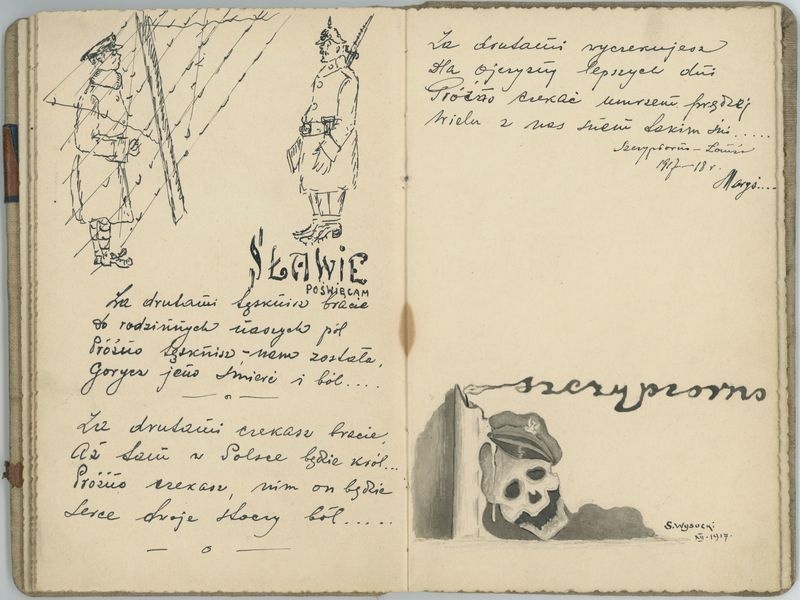 SŁAWIE
POŚWIĘCAM
Za drutami tęsknisz bracie
do rodzinnych naszych pól
Próżno tęsknisz – nam została,
Gorycz jeno śmierć i ból....
Za drutami czekasz bracie,
Aż tam w Polsce będzie król...
Próżno czekasz, nim on będzie
Serce twoje stoczy ból.....
Za drutami wyczekujesz
Dla ojczyzny lepszych dni
Próżno czekać umrzem prędzej
Wielu z nas snem takim śni.....
Szczypiorno – Łomża
1917–18 r.
szczypiorno
S. WYSOCKI
XII. 1917.